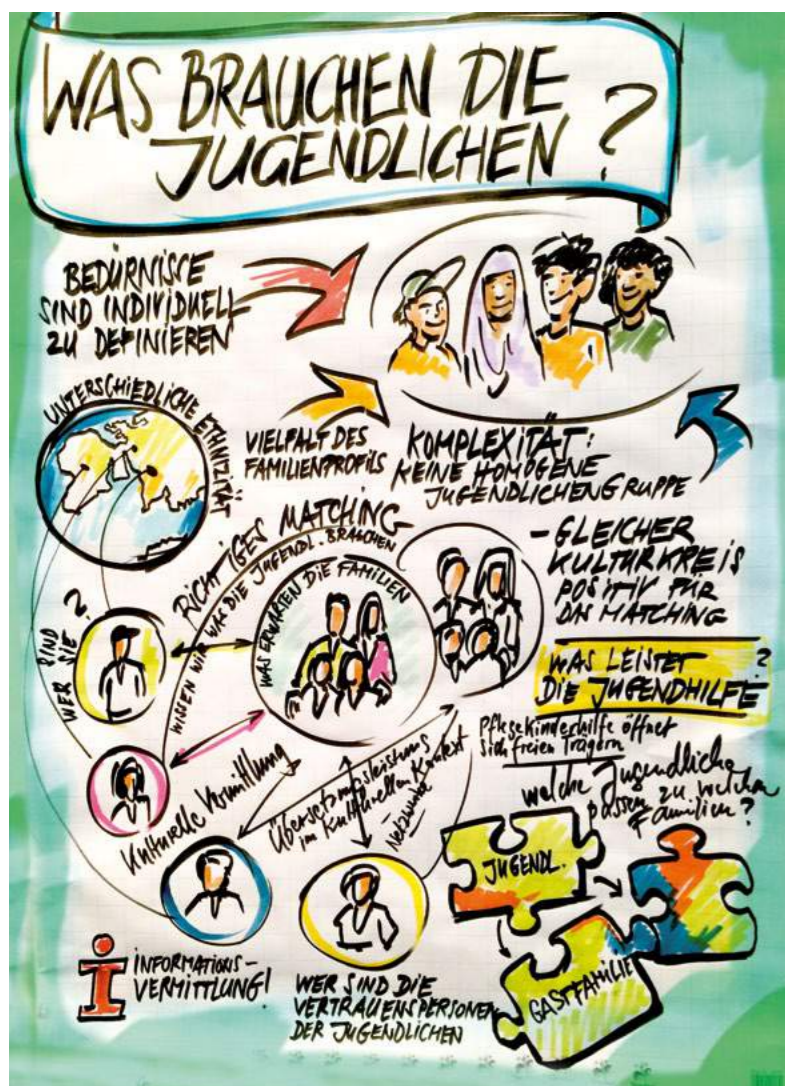 WAS BRAUCHEN DIE
JUGENDLICHEN ?
BEDÜRNISSE
SIND INDIVIDUELL
ZU DEFINIEREN
UNTERSCHIEDLICHE ETHNIZITÄT
VIELFALT DES
FAMILIENPROFILS
KOMPLEXITÄT:
KEINE HOMOGENE
JUGENDLICHENGRUPPE
RICHTIGES MATCHING
WISSEN WIR WAS DIE JUGENDL. BRAUCHEN
WAS ERWARTEN DIE FAMILIEN
- GLEICHER
KULTURKREIS
POSITIV FÜR
DAS MATCHING
WER SIND SIE?
WAS LEISTET
DIE JUGENDHILFE?
Pflegekinderhilfe öffnet
sich freien Trägern
welche Jugendliche
passen zu welchen
Familien?
Kulturelle Vermittlung
Übersetzungsleistung
im kulturellen Kontext
Netzwerke
JUGENDL.
GASTFAMILIE
i INFORMATIONS-
VERMITTLUNG!
WER SIND DIE
VERTRAUENSPERSONEN
DER JUGENDLICHEN